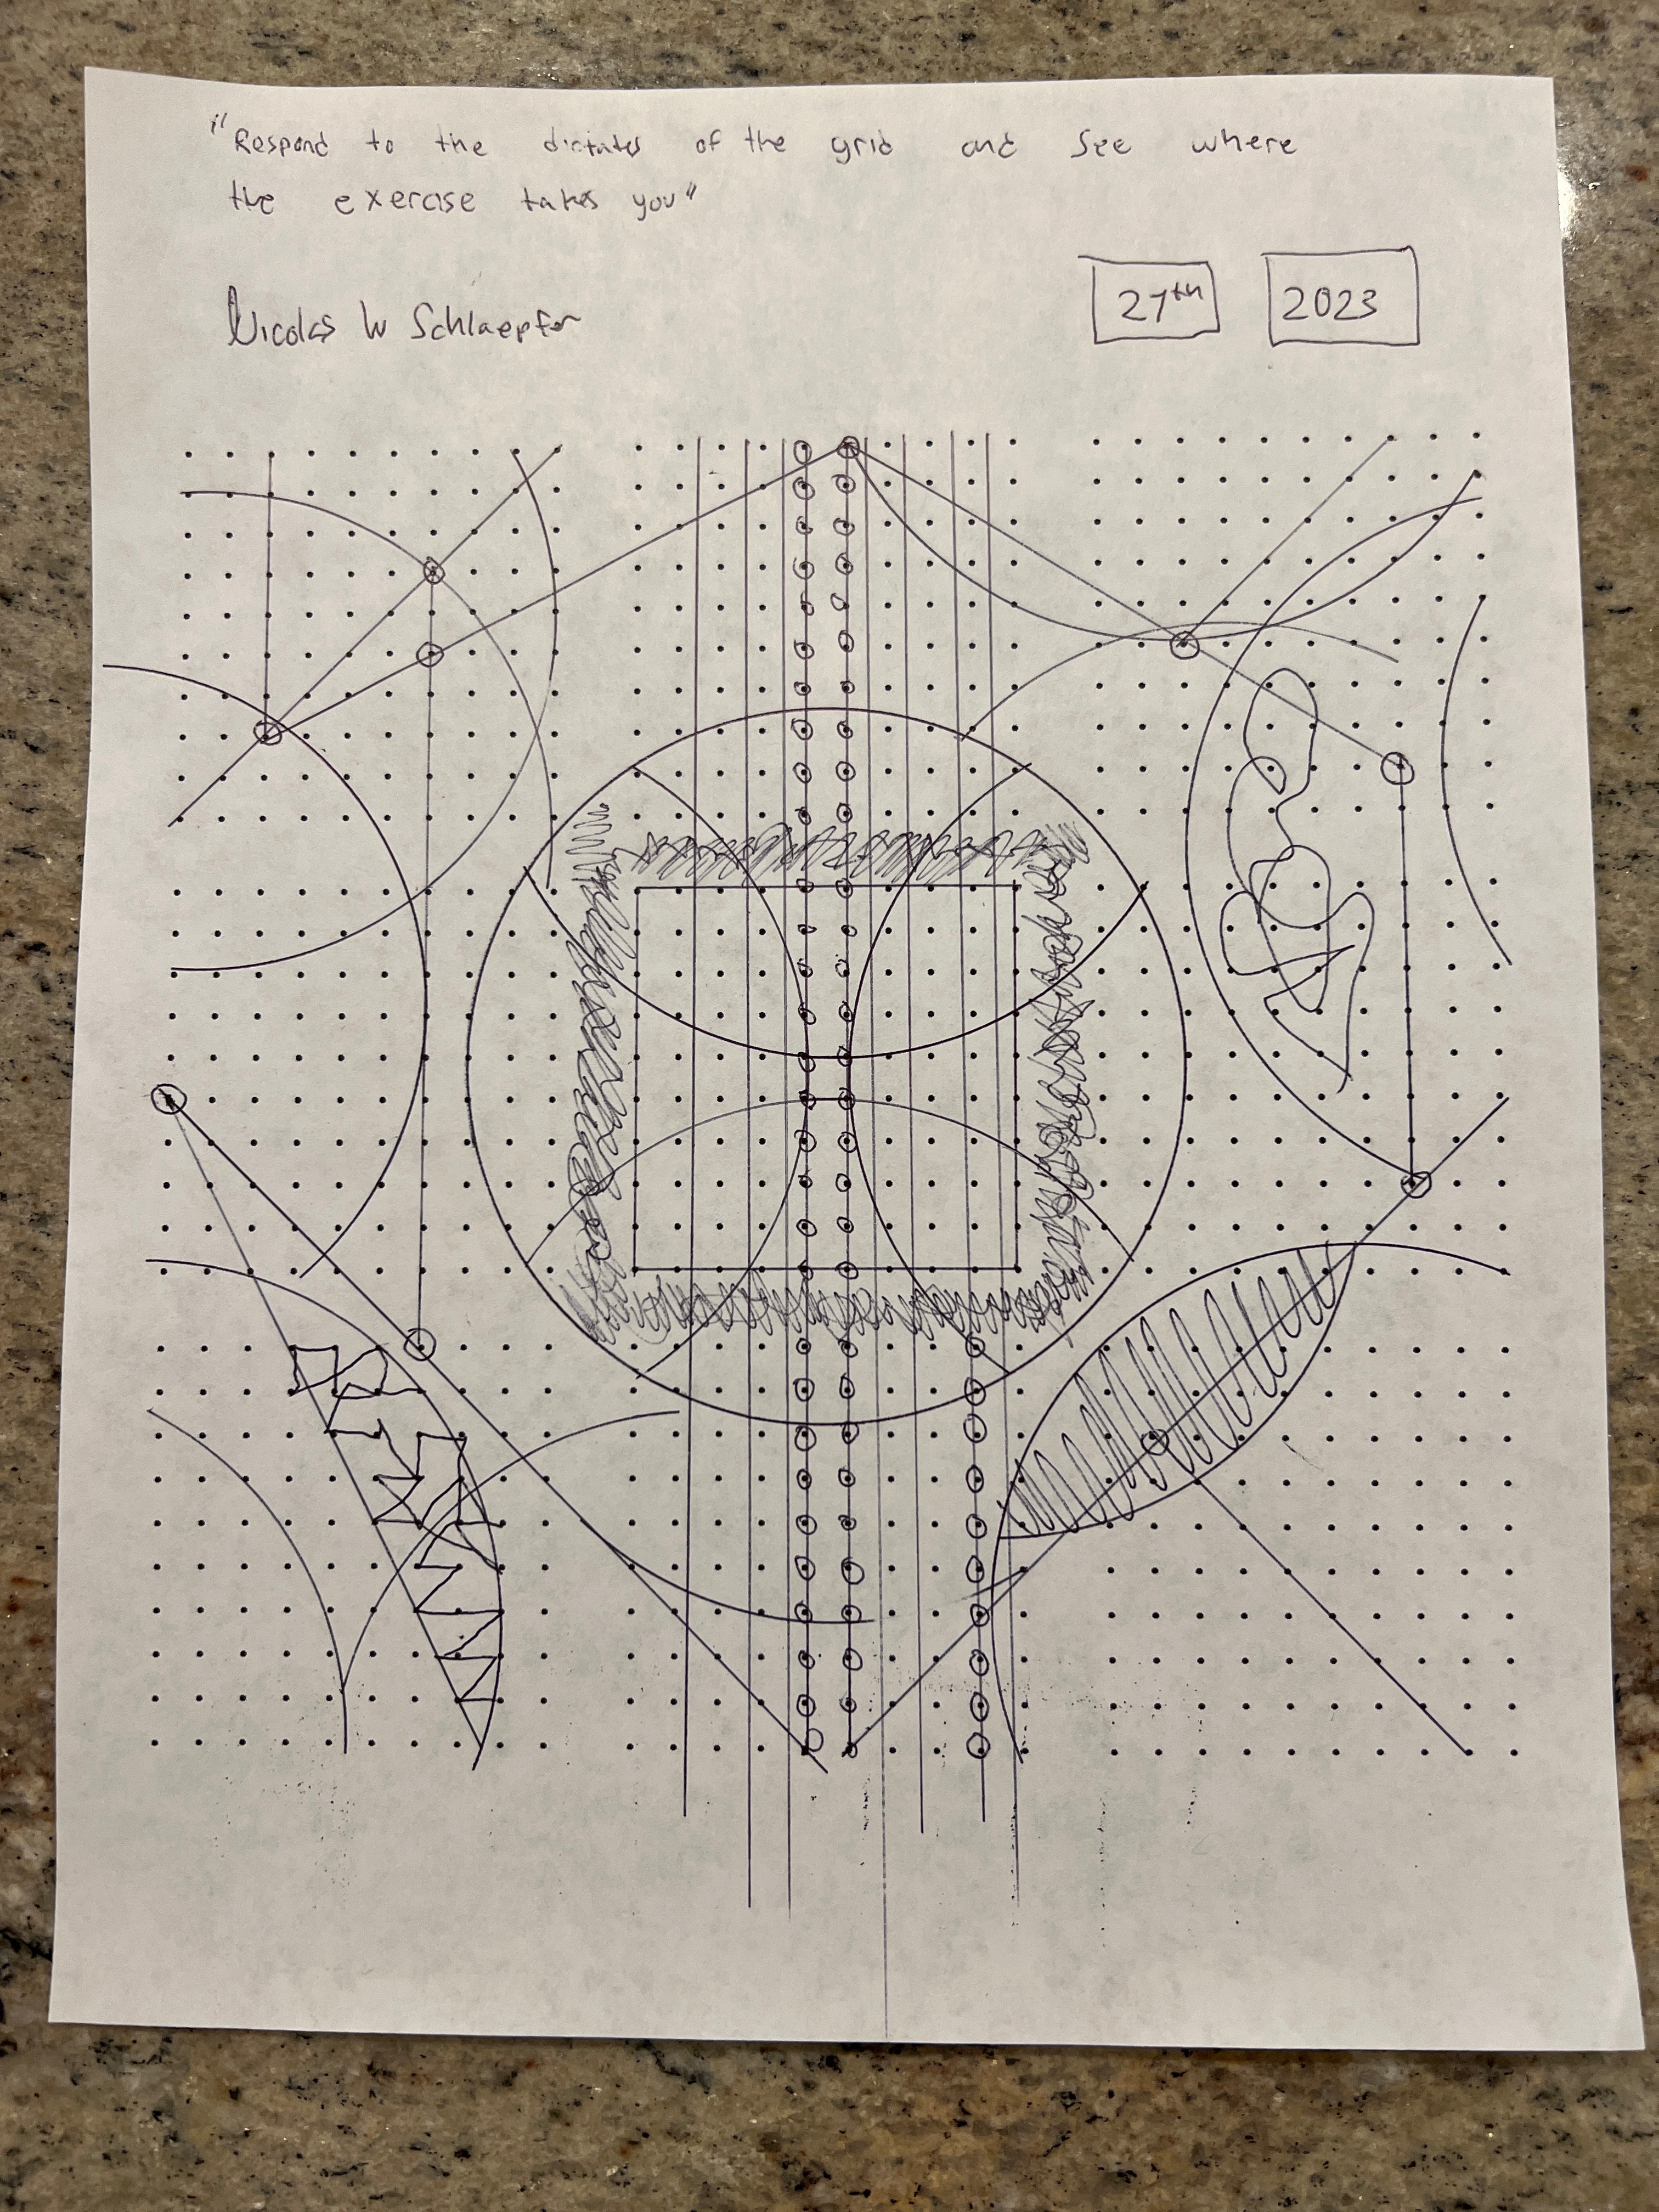 "Respond to the dictates of the grid and see where
the exercise takes you"
Nicolas W Schlaepfer
27th 2023